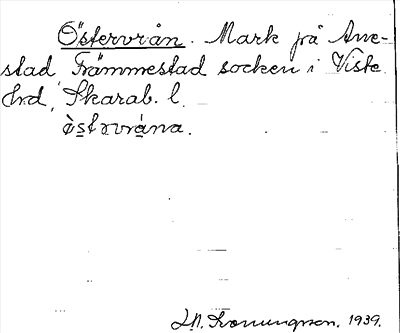 Östervrån. Mark på Ane-
stad, Främmestad socken i Viste
hrd, Skarab. l.
östərvrána.
1939.